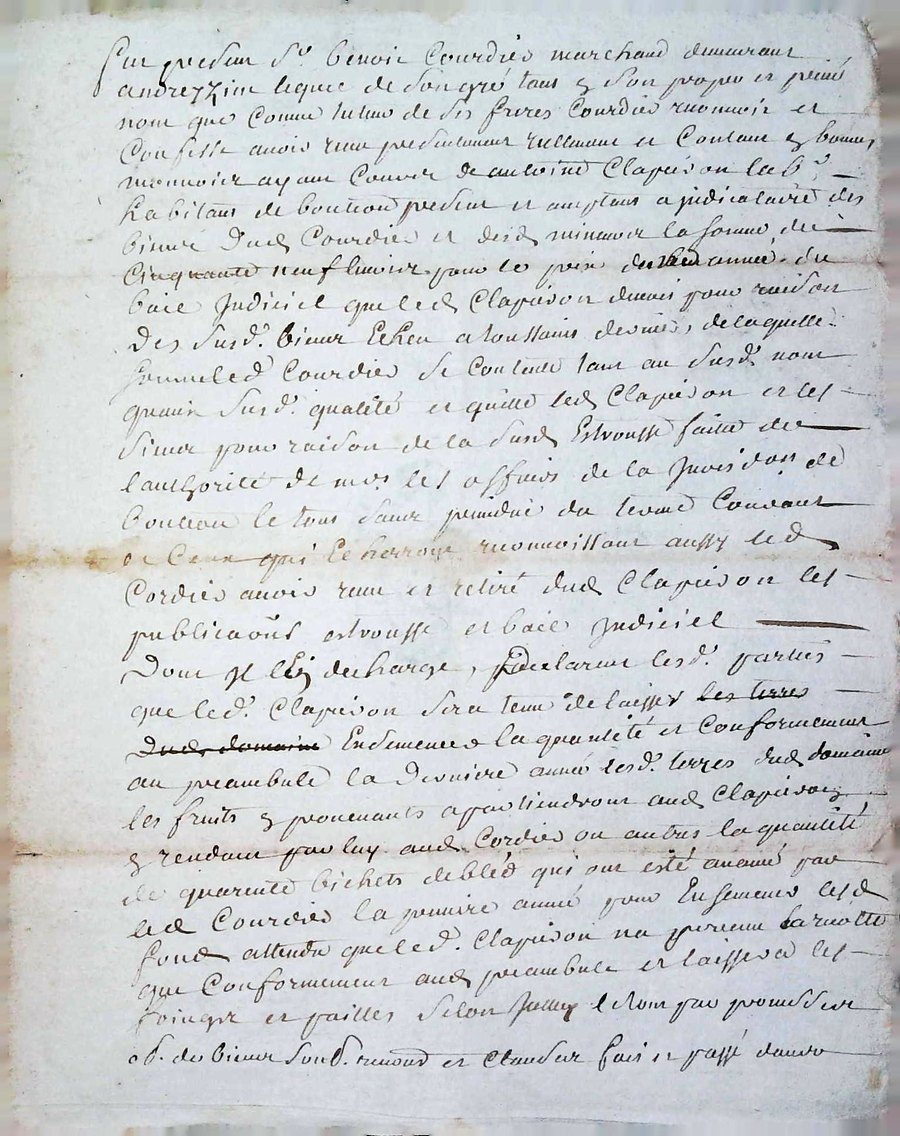 Fut presant Sr. benoit Courdier marchand demeurant
andrezzieu lequel de son gré tant en son propre et privé
nom que comme tuteur de ses freres Courdier reconnoit et
Confesse avoir receu presentement reellement et Contant en bonne
monnoie ayant Cours de antoine Clapeiron lab.r
habitant de bouteon present et acceptant ajudicataire des
biens dud Courdier et desd mineurs la somme de
Cinquante neuf livres pour le prix de année du
baie Judiciel que led Clapeiron devait pour raison
Des susd. biens Echeu a toussaint dernier, de laquelle
somme led Courdier se Contente tant au susd. nom
quen susd. qualité et quitte led Clapeiron et les
siens pour raison de la susd Estrousse faitte de
l'authorité de mrs. les officiers de la Juris.don de
bouteon le tout sans prejudice du terme Courant
et Ceux qui Echerront reconnoissant aussy led
Cordier avoir receu et retiré dud Clapeiron les
publicaõns estrousse et baie Judiciel
Dont Il l'en decharge, declarant lesd. parties
que led. Clapeiron sera tenu de laisser les terres
dud domaine Ensemencés la quantité et Conformement
au preambule la Derniere année lesd. terres dud domaine
les fruits en provenants apartiendront aud Clapeiron
en rendant par luy aud Cordier ou autres la quantité
de quarente bichets de bled qui ont esté avancé par
led Courdier la premiere année pour Ensemencé lesd
fond attendu que led. Clapeiron na perceu la recolte
que Conformement aud preambule et laissera les
foinges et pailles selon le tout par promesse
ob. de biens soub. renond et Clauses fait et passé dans